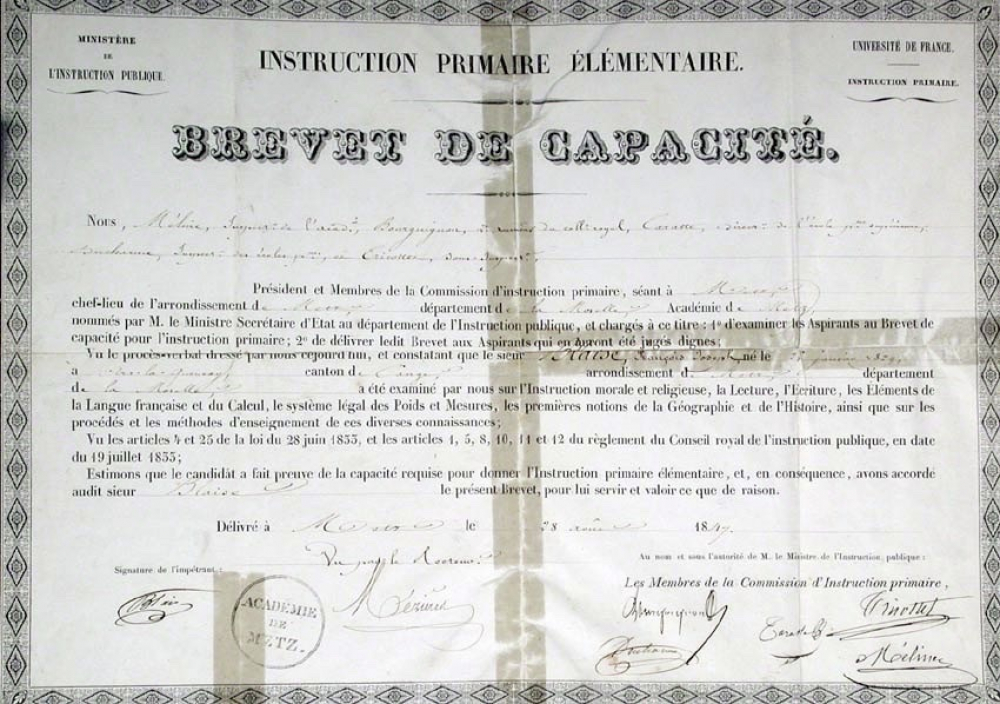 MINISTÈRE
DE
L'INSTRUCTION PUBLIQUE.
INSTRUCTION PRIMAIRE ÉLÉMENTAIRE.
UNIVERSITÉ DE FRANCE.
INSTRUCTION PRIMAIRE.
BREVET DE CAPACITÉ.
Nous, Méline, de Bourguignon, du coll. royal, Caratte, de l'école
des écoles et
Président et Membres de la Commission d'instruction primaire, séant à Metz
chef-lieu de l'arrondissement de Metz département de la Moselle, Académie de Metz,
nommés par M. le Ministre Secrétaire d'Etat au département de l'Instruction publique, et chargés à ce titre : 1° d'examiner les Aspirants au Brevet de
capacité pour l'instruction primaire ; 2° de délivrer ledit Brevet aux Aspirants qui en auront été jugés dignes ;
Vu le procès-verbal dressé par nous cejourd'hui, et constatant que le sieur Blaise, François Joseph, né le janvier
à canton de arrondissement de département
de la Moselle, a été examiné par nous sur l'Instruction morale et religieuse, la Lecture, l'Ecriture, les Eléments de
la Langue française et du Calcul, le système légal des Poids et Mesures, les premières notions de la Géographie et de l'Histoire, ainsi que sur les
procédés et les méthodes d'enseignement de ces diverses connaissances ;
Vu les articles 4 et 25 de la loi du 28 juin 1833, et les articles 1, 5, 8, 10, 11 et 12 du règlement du Conseil royal de l'instruction publique, en date
du 19 juillet 1833 ;
Estimons que le candidat a fait preuve de la capacité requise pour donner l'Instruction primaire élémentaire, et, en conséquence, avons accordé
audit sieur Blaise le présent Brevet, pour lui servir et valoir ce que de raison.
Délivré à Metz le 28 août 1849.
Vu par le Recteur
Au nom et sous l'autorité de M. le Ministre de l'Instruction publique :
Signature de l'impétrant :
Les Membres de la Commission d'Instruction primaire,
ACADÉMIE
DE
METZ.
Méline